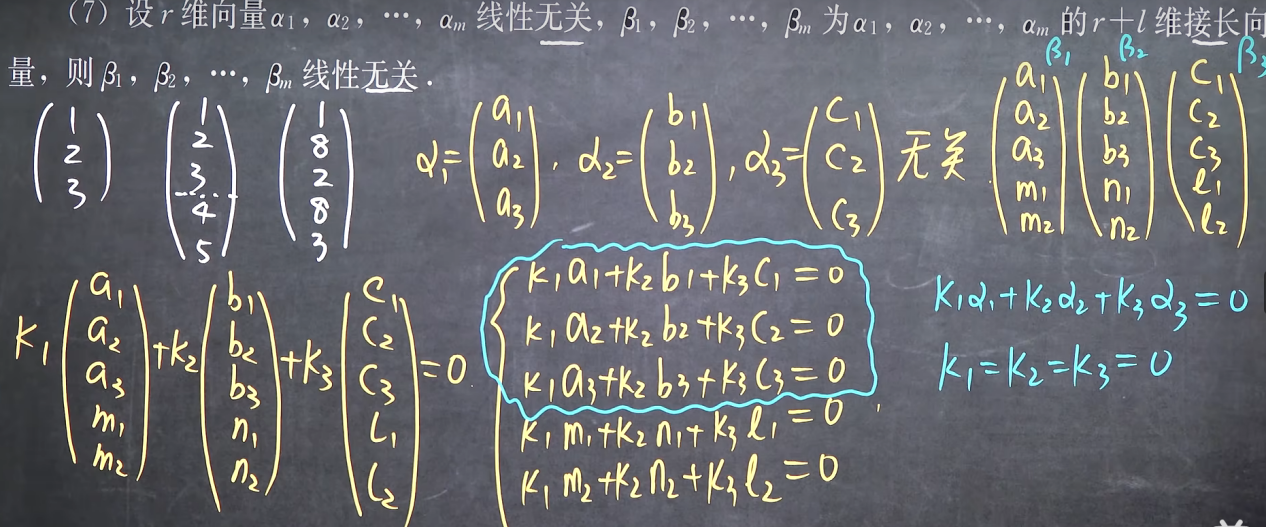 (7) 设 r 维向量 α₁, α₂, ⋯, αₘ 线性无关, β₁, β₂, ⋯, βₘ 为 α₁, α₂, ⋯, αₘ 的 r+l 维接长向
量, 则 β₁, β₂, ⋯, βₘ 线性无关.
β₁ β₂ β₃
(1 2 3) (1 2 3 4 5) (1 8 2 8 3) α₁=(a₁ a₂ a₃), α₂=(b₁ b₂ b₃), α₃=(c₁ c₂ c₃) 无关 (a₁ a₂ a₃ m₁ m₂) (b₁ b₂ b₃ n₁ n₂) (c₁ c₂ c₃ l₁ l₂)
k₁(a₁ a₂ a₃ m₁ m₂)+k₂(b₁ b₂ b₃ n₁ n₂)+k₃(c₁ c₂ c₃ l₁ l₂)=0.
k₁a₁+k₂b₁+k₃c₁=0
k₁a₂+k₂b₂+k₃c₂=0
k₁a₃+k₂b₃+k₃c₃=0
k₁m₁+k₂n₁+k₃l₁=0
k₁m₂+k₂n₂+k₃l₂=0
k₁α₁+k₂α₂+k₃α₃=0
k₁=k₂=k₃=0